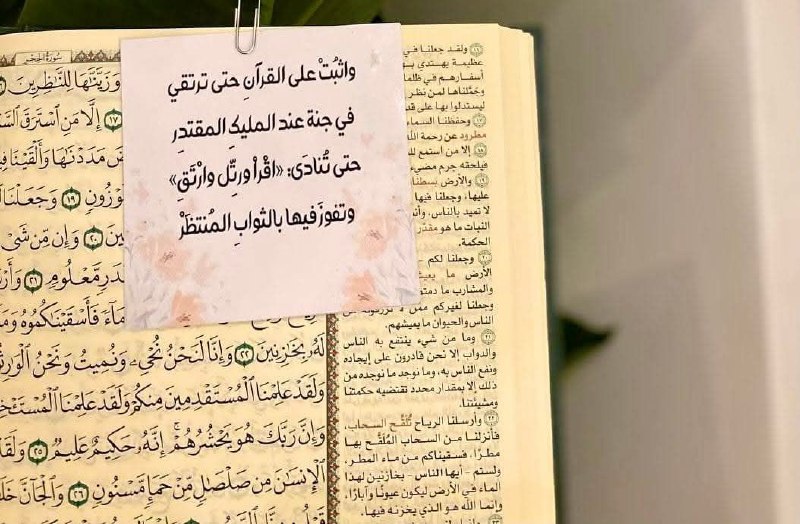 سُورَةُ الحِجْر
واثبُتْ على القرآنِ حتى ترتقي
في جنة عند المليكِ المقتدِر
حتى تُنادَى: «اقْرأْ ورتِّل وارْتَقِ»
وتفوزَ فيها بالثوابِ المُنتظَرْ
وَزَيَّنَّٰهَا لِلنَّٰظِرِينَ
١٧ إِلَّا مَنِ ٱسْتَرَقَ
مَدَدْنَٰهَا وَأَلْقَيْنَا
١٩ وَجَعَلْنَا
٢٠ وَإِن مِّن شَىْ
مَّعْلُومٍ ٢١
فَأَسْقَيْنَٰكُمُوهُ
لَهُۥ بِخَٰزِنِينَ ٢٢ وَإِنَّا لَنَحْنُ نُحْىِۦ وَنُمِيتُ وَنَحْنُ
وَلَقَدْ عَلِمْنَا ٱلْمُسْتَقْدِمِينَ مِنكُمْ وَلَقَدْ عَلِمْنَا
وَإِنَّ رَبَّكَ هُوَ يَحْشُرُهُمْ ۚ إِنَّهُۥ حَكِيمٌ عَلِيمٌ ٢٥
ٱلْإِنسَٰنَ مِن صَلْصَٰلٍ مِّنْ حَمَإٍ مَّسْنُونٍ ٢٦ وَٱلْجَآنَّ
ولقد جعلنا في
عظيمة يهتدي
أسفارهم في
وجمَّلناها لمن نظر
ليستدلوا بها على
وحفظنا السماء
مطرود عن رحمة
إلا من استمع
فيلحقه جرم
والأرض بسطنا
عليها، وجعلنا فيها
لا تميد بالناس،
النبات ما هو مقدّر
الحكمة.
وجعلنا لكم
الأرض ما
والمشارب ما دمتم
وجعلنا لغيركم
الناس والحيوان ما يعيشهم.
وما من شيء ينتفع به الناس
والدواب إلا نحن قادرون على إيجاده
ونفع الناس به، وما نوجد ما نوجده من
ذلك إلا بمقدار محدد تقتضيه حكمتنا
ومشيئتنا.
وأرسلنا الرياح تُلَقِّح السحاب،
فأنزلنا من السحاب المُلقَّح بها
مطرًا، فسقيناكم من ماء المطر،
ولستم - أيها الناس - بخازنين لهذا
الماء في الأرض ليكون عيونًا وآبارًا،
وإنما الله هو الذي يخزنه فيها.